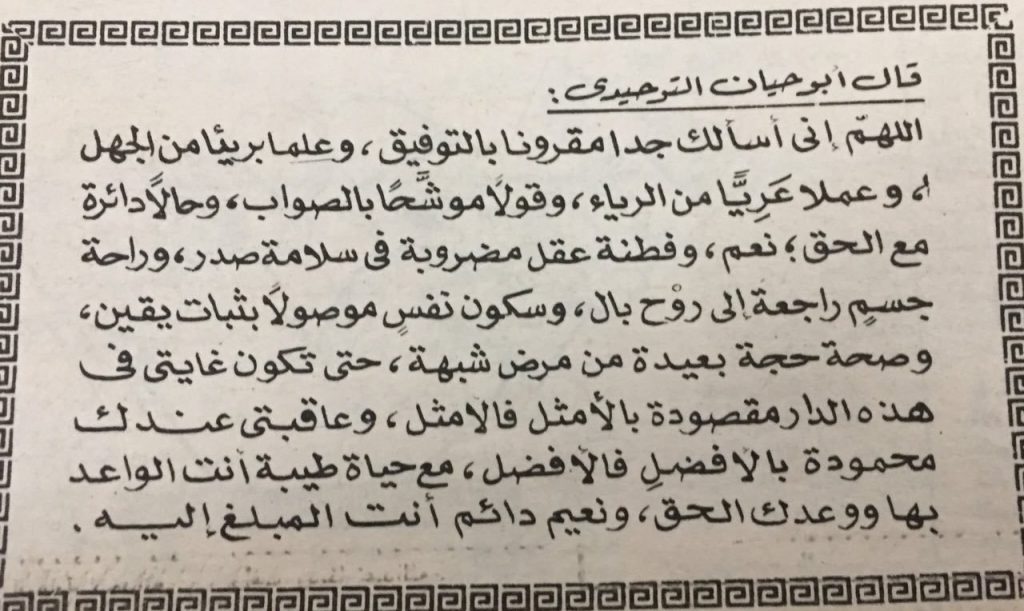 قال أبو حيان التوحيدى :
اللهمّ إنى أسألك جدا مقرونا بالتوفيق ، وعلما بريئا من الجهل
، وعملا عَرِيًّا من الرياء ، وقولاً موشَّحًا بالصواب ، وحالاً دائرة
مع الحق ؛ نعم ، وفطنة عقل مضروبة فى سلامة صدر ، وراحة
جسمٍ راجعة إلى روْح بال ، وسكون نفسٍ موصولاً بثبات يقين ،
وصحة حجة بعيدة من مرض شبهة ، حتى تكون غايتى فى
هذه الدار مقصودة بالأمثل فالامثل ، وعاقبتى عندك
محمودة بالافضلِ فالأفضل ، مع حياة طيبة أنت الواعد
بها ووعدك الحق ، ونعيم دائم أنت المبلغ إليه .